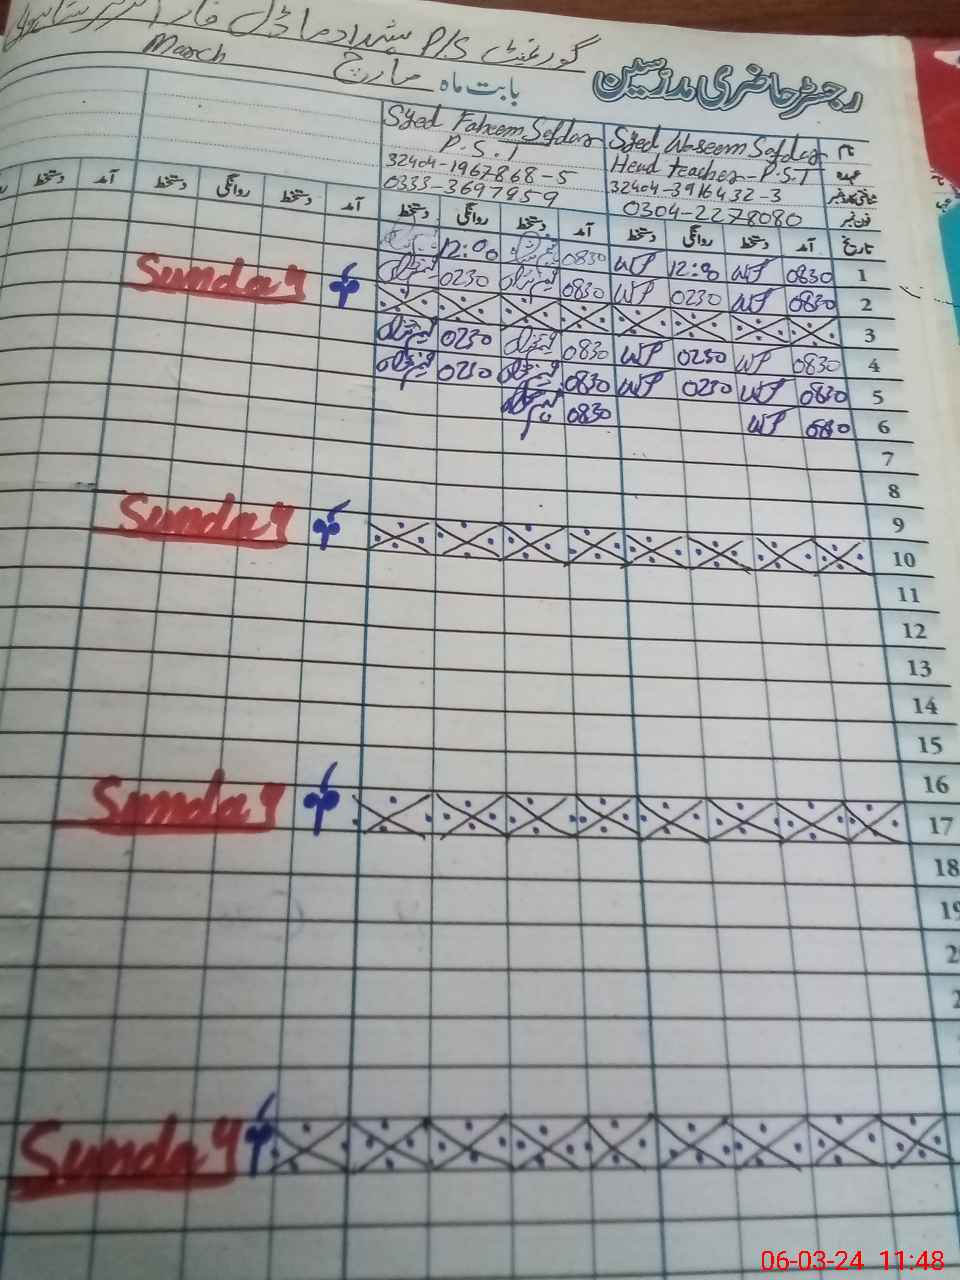 گورنمنٹ P/S
رجسٹر حاضری مدرسین
بابت ماہ مارچ March
نام Syed Waseem Safdar Syed Faheem Safdar
عہدہ Head teacher-P.S.T P.S.T
شناختی کارڈ نمبر 32404-3916432-3 32404-1967868-5
فون نمبر 0304-2278080 0333-3697959
تاریخ آمد دستخط روانگی دستخط آمد دستخط روانگی دستخط آمد دستخط روانگی دستخط آمد دستخط
1 0830 WP 12:00 WP 0830 12:00
2 0830 WP 0230 WP 0830 0230
3 Sunday
4 0830 WP 0230 WP 0830 0230
5 0830 WP 0230 WP 0830 0230
6 0830 WP 0830
7
8
9
10 Sunday
11
12
13
14
15
16
17 Sunday
18
19
Sunday
06-03-24 11:48